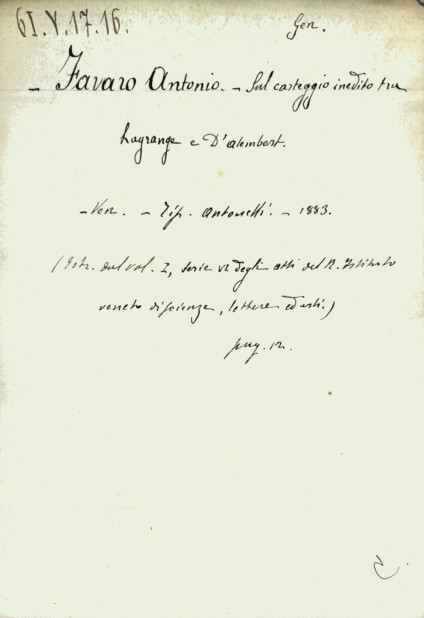 61.V.17.16.
Gen.
- Favaro Antonio. - Sul carteggio inedito tra
Lagrange e D'alembert.
- Ven. - Tip. Antonelli. - 1883.
(Estr. dal vol. I, serie VI degli atti del R. Istituto
veneto di scienze, lettere ed arti.)
pag. 12.